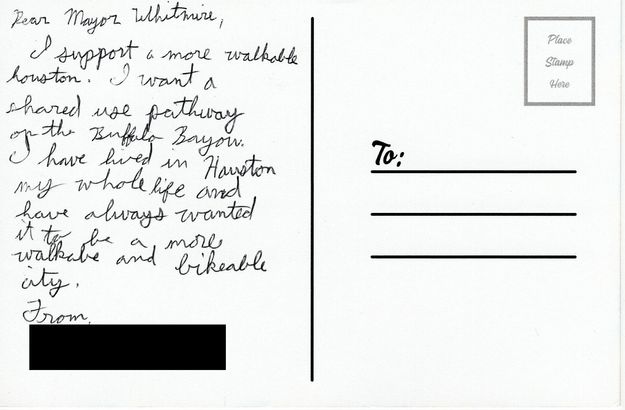 Dear Mayor Whitmire,
I support a more walkable
houston. I want a
shared use pathway
on the Buffalo Bayou.
I have lived in Houston
my whole life and
have always wanted
it to be a more
walkabe and bikeable
city.
From,
Place
Stamp
Here
To: